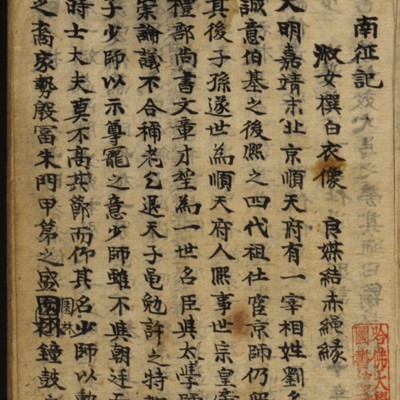 南征記
淑女撰白衣像 良媒結赤繩緣
大明嘉靖末北京順天府有一宰相姓劉名
誠意伯基之後熙之四代祖仕宦京師仍
其後子孫遂世為順天府人熙事世宗皇
禮部尚書文章才望為一世名臣與太學
論議不合称老乞退天子黽勉許之特
子少師以示尊寵之意少師雖不與朝廷
時士大夫莫不高其節而仰其名少師以
之裔家勢殷富朱門甲第之盛園林鐘鼓
園林
哈佛大
圖書